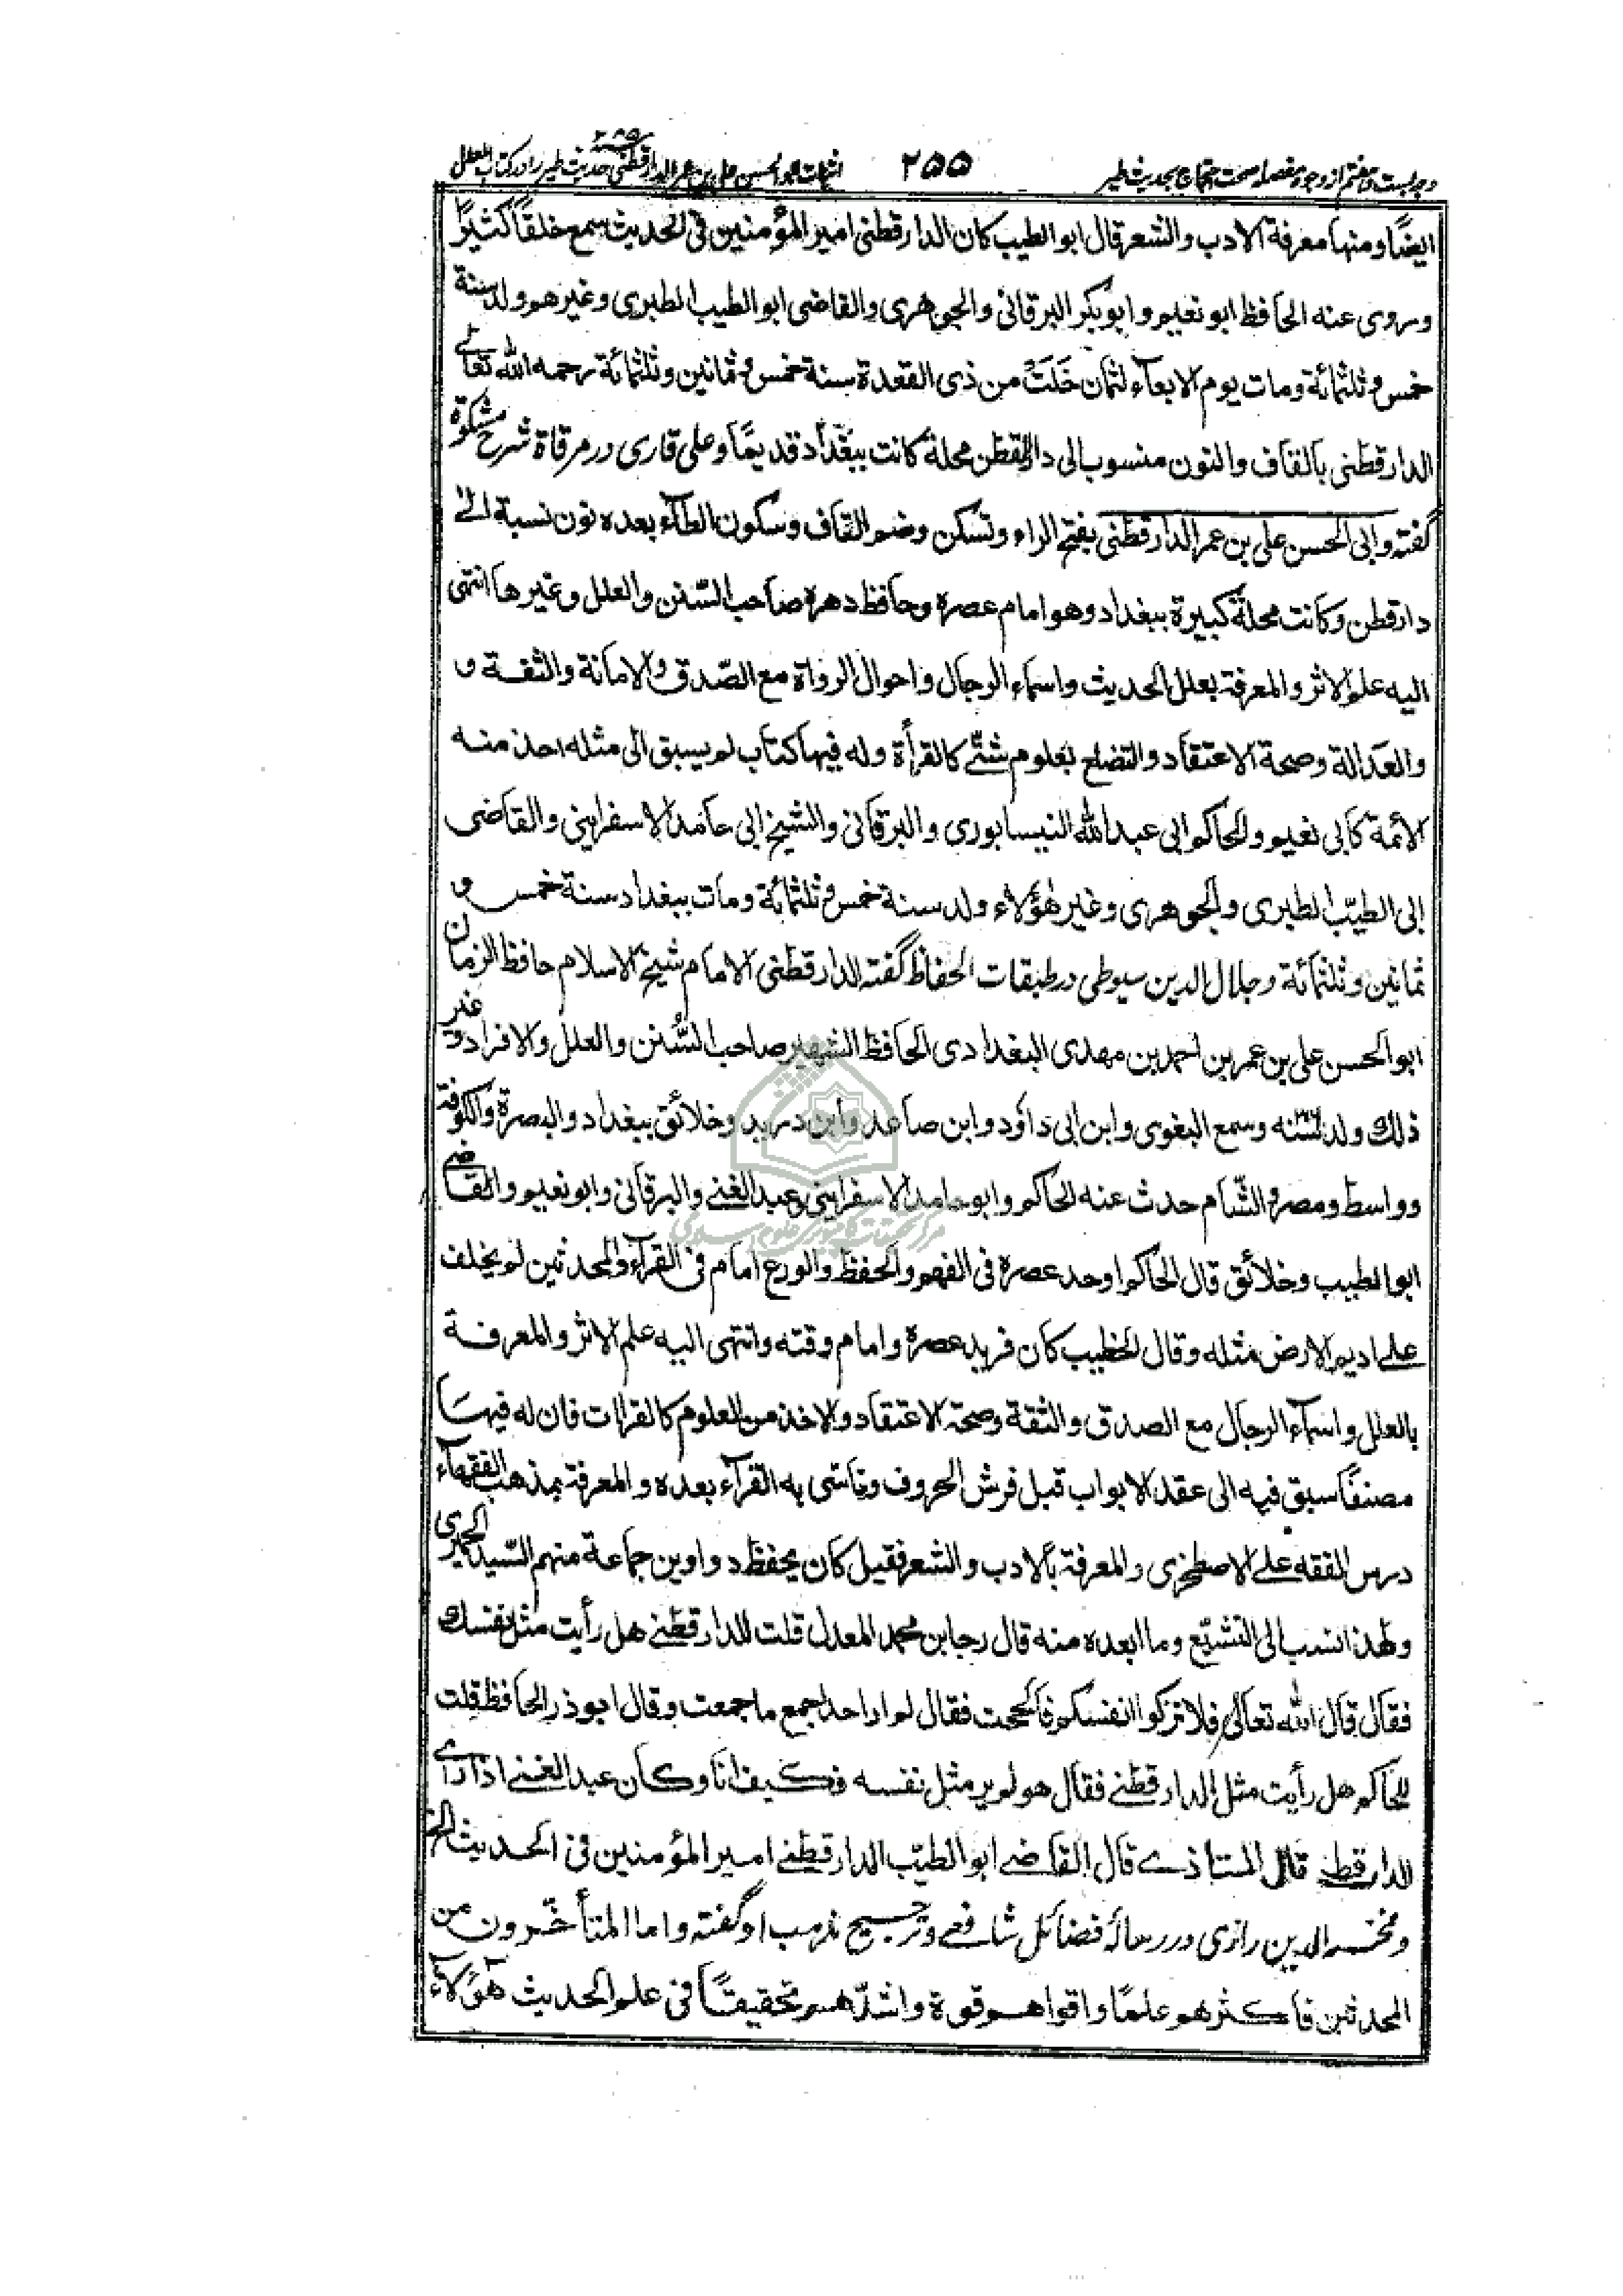 وجه بست و هفتم از وجوه مفصله صحت احتجاج بحدیث طیر ۲۵۵ اثبات ابو الحسن علی بن عمر الدارقطنی حدیث طیر را در کتاب العلل
ایضًا ومنها معرفة الادب والشعر قال ابو الطیب کان الدارقطنی امیر المؤمنین فی الحدیث سمع خلقًا کثیرًا
وروی عنه الحافظ ابو نعیم وابو بکر البرقانی والجوهری والقاضی ابو الطیب الطبری وغیرهم ولد سنة
خمس وثلثمائة ومات یوم الابعاء لثمان خَلَتْ من ذی القعدة سنة خمس وثمانین وثلثمائة رحمه الله تعالے
الدارقطنی بالقاف والنون منسوب الی دار القطن محلة کانت ببغداد قدیمًا وعلی قاری در مرقاة شرح مشکوة
گفته وابی الحسن علی بن عمر الدارقطنی بفتح الراء وتسکن وضم القاف وسکون الطاء بعده نون نسبة الی
دارقطن وکانت محلة کبیرة ببغداد وهو امام عصره وحافظ دهره صاحب السّنن والعلل وغیرها انتهی
الیه علم الاثر والمعرفة بعلل الحدیث واسماء الرجال واحوال الرواة مع الصّدق والامانة والثقة و
والعدالة وصحة الاعتقاد والتضلع بعلوم شتّے کالقرأة وله فیها کتاب لم یسبق الی مثله اخذ منه
الائمة کابی نعیم والحاکم ابی عبد الله النیسابوری والبرقانی والشیخ ابی حامد الاسفراینی والقاضی
ابی الطیّب الطبری والجوهری وغیر هٰؤلاء ولد سنة خمس وثلثمائة ومات ببغداد سنة خمس و
ثمانین وثلثمائة وجلال الدین سیوطی در طبقات الحفاظ گفته الدارقطنی الامام شیخ الاسلام حافظ الزمان
ابو الحسن علی بن عمر بن احمد بن مهدی البغدادی الحافظ الشهیر صاحب السُّنن والعلل والافراد و غیر
ذلك ولد سنه وسمع البغوی وابن ابی داؤد وابن صاعد وابن درید وخلائق ببغداد والبصرة والکوفة
وواسط ومصر والشّام حدث عنه الحاکم وابو حامد الاسفراینی وعبد الغنے والبرقانی وابو نعیم والقاضے
ابو الطیب وخلائق قال الحاکم اوحد عصره فی الفهم والحفظ والورع امام فی القرآء والمحدثین لم یخلف
علے ادیم الارض مثله وقال الخطیب کان فرید عصره وامام وقته وانتهی الیه علم الاثر والمعرفة
بالعلل واسماء الرجال مع الصدق والثقة وصحة الاعتقاد والاخذ من العلوم کالقراات فان له فیها
مصنفًا سبق فیه الی عقد الابواب قبل فرش الحروف وتأسّی به القرآء بعده والمعرفة بمذهب الفقهاء
درس الفقه علے الاصطخری والمعرفة بالادب والشعر فقیل کان یحفظ دواوین جماعة منهم السّید الحمیری
ولهذا نسب الی التشیّع وما ابعده منه قال رجا بن محمد المعدل قلت للدارقطنے هل رأیت مثل نفسك
فقال قال الله تعالی فلا تزکوا انفسکم فألححت فقال لم ار احدا جمع ما جمعت وقال ابو ذر الحافظ قلت
للحاکم هل رأیت مثل الدارقطنے فقال هو لم یر مثل نفسه فکیف انا وکان عبد الغنے اذا رای
الدارقطنے قال استاذے قال القاضے ابو الطیّب الدارقطنے امیر المؤمنین فی الحدیث الخ
وفخر الدین رازی در رسالۂ فضائل شافعے وترجیح مذهب او گفته واما المتأخّرون من
المحدثین فاکثرهم علمًا واقواهم قوة واشدّهم تحقیقًا فی علم الحدیث هٰؤلآء
مرکز تحقیقات کامپیوتری علوم اسلامی